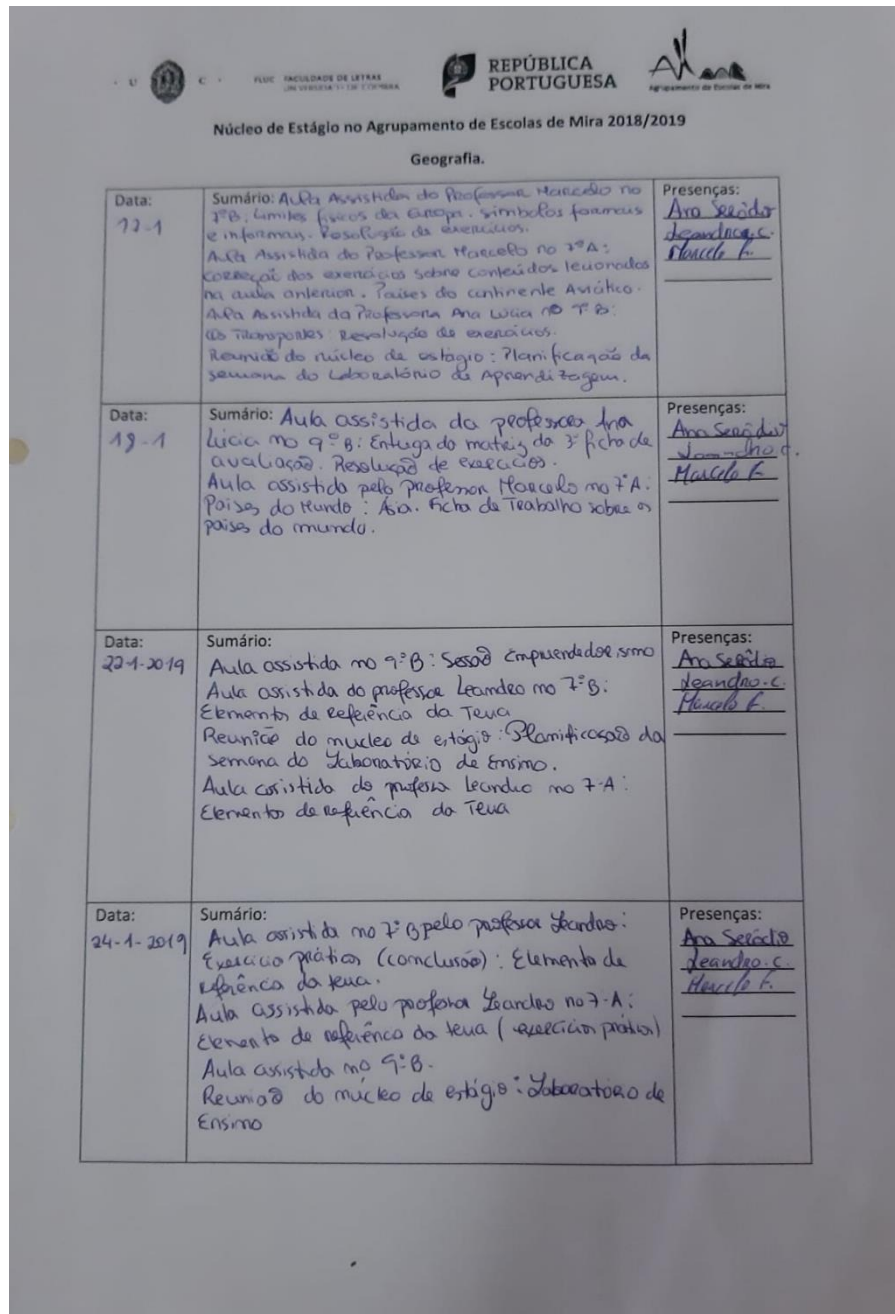 · U C ·
FLUC FACULDADE DE LETRAS
UNIVERSIDADE DE COIMBRA
REPÚBLICA
PORTUGUESA
Agrupamento de Escolas de Mira
Núcleo de Estágio no Agrupamento de Escolas de Mira 2018/2019
Geografia.
Data:
17-1
Sumário: Aula Assistida do Professor Marcelo no
7ºB, Limites físicos da Europa. símbolos formais
e informais. Resolução de exercícios.
Aula Assistida do Professor Marcelo no 7ºA:
Correção dos exercícios sobre conteúdos lecionados
na aula anterior. Países do continente Asiático.
Aula Assistida da Professora Ana Lúcia no 9ºB:
Os Transportes: Resolução de exercícios.
Reunião do núcleo de estágio: Planificação da
semana do Laboratório de Aprendizagem.
Presenças:
Ana Seródio
Leandro.c.
Marcelo F.
Data:
18-1
Sumário: Aula assistida da professora Ana
Lúcia no 9ºB: Entrega da matriz da 3ª ficha de
avaliação. Resolução de exercícios.
Aula assistida pelo professor Marcelo no 7ºA:
Países do Mundo: Ásia. Ficha de Trabalho sobre os
países do mundo.
Presenças:
Ana Seródio
Leandro c.
Marcelo F.
Data:
22-1-2019
Sumário:
Aula assistida no 9ºB: Sessão Empreendedorismo
Aula assistida do professor Leandro no 7ºB:
Elementos de referência da Terra
Reunião do nucleo de estágio: Planificação da
Semana do Laboratório de Ensino.
Aula assistida do professor Leandro no 7-A:
Elementos de referência da Terra
Presenças:
Ana Seródio
Leandro.c.
Marcelo F.
Data:
24-1-2019
Sumário:
Aula assistida no 7ºB pelo professor Leandro:
Exercício prático (conclusão): Elemento de
referência da terra.
Aula assistida pelo professor Leandro no 7-A:
Elemento de referência da terra (exercícios práticos)
Aula assistida no 9ºB.
Reunião do núcleo de estágio: Laboratório de
Ensino
Presenças:
Ana Seródio
Leandro.c.
Marcelo F.